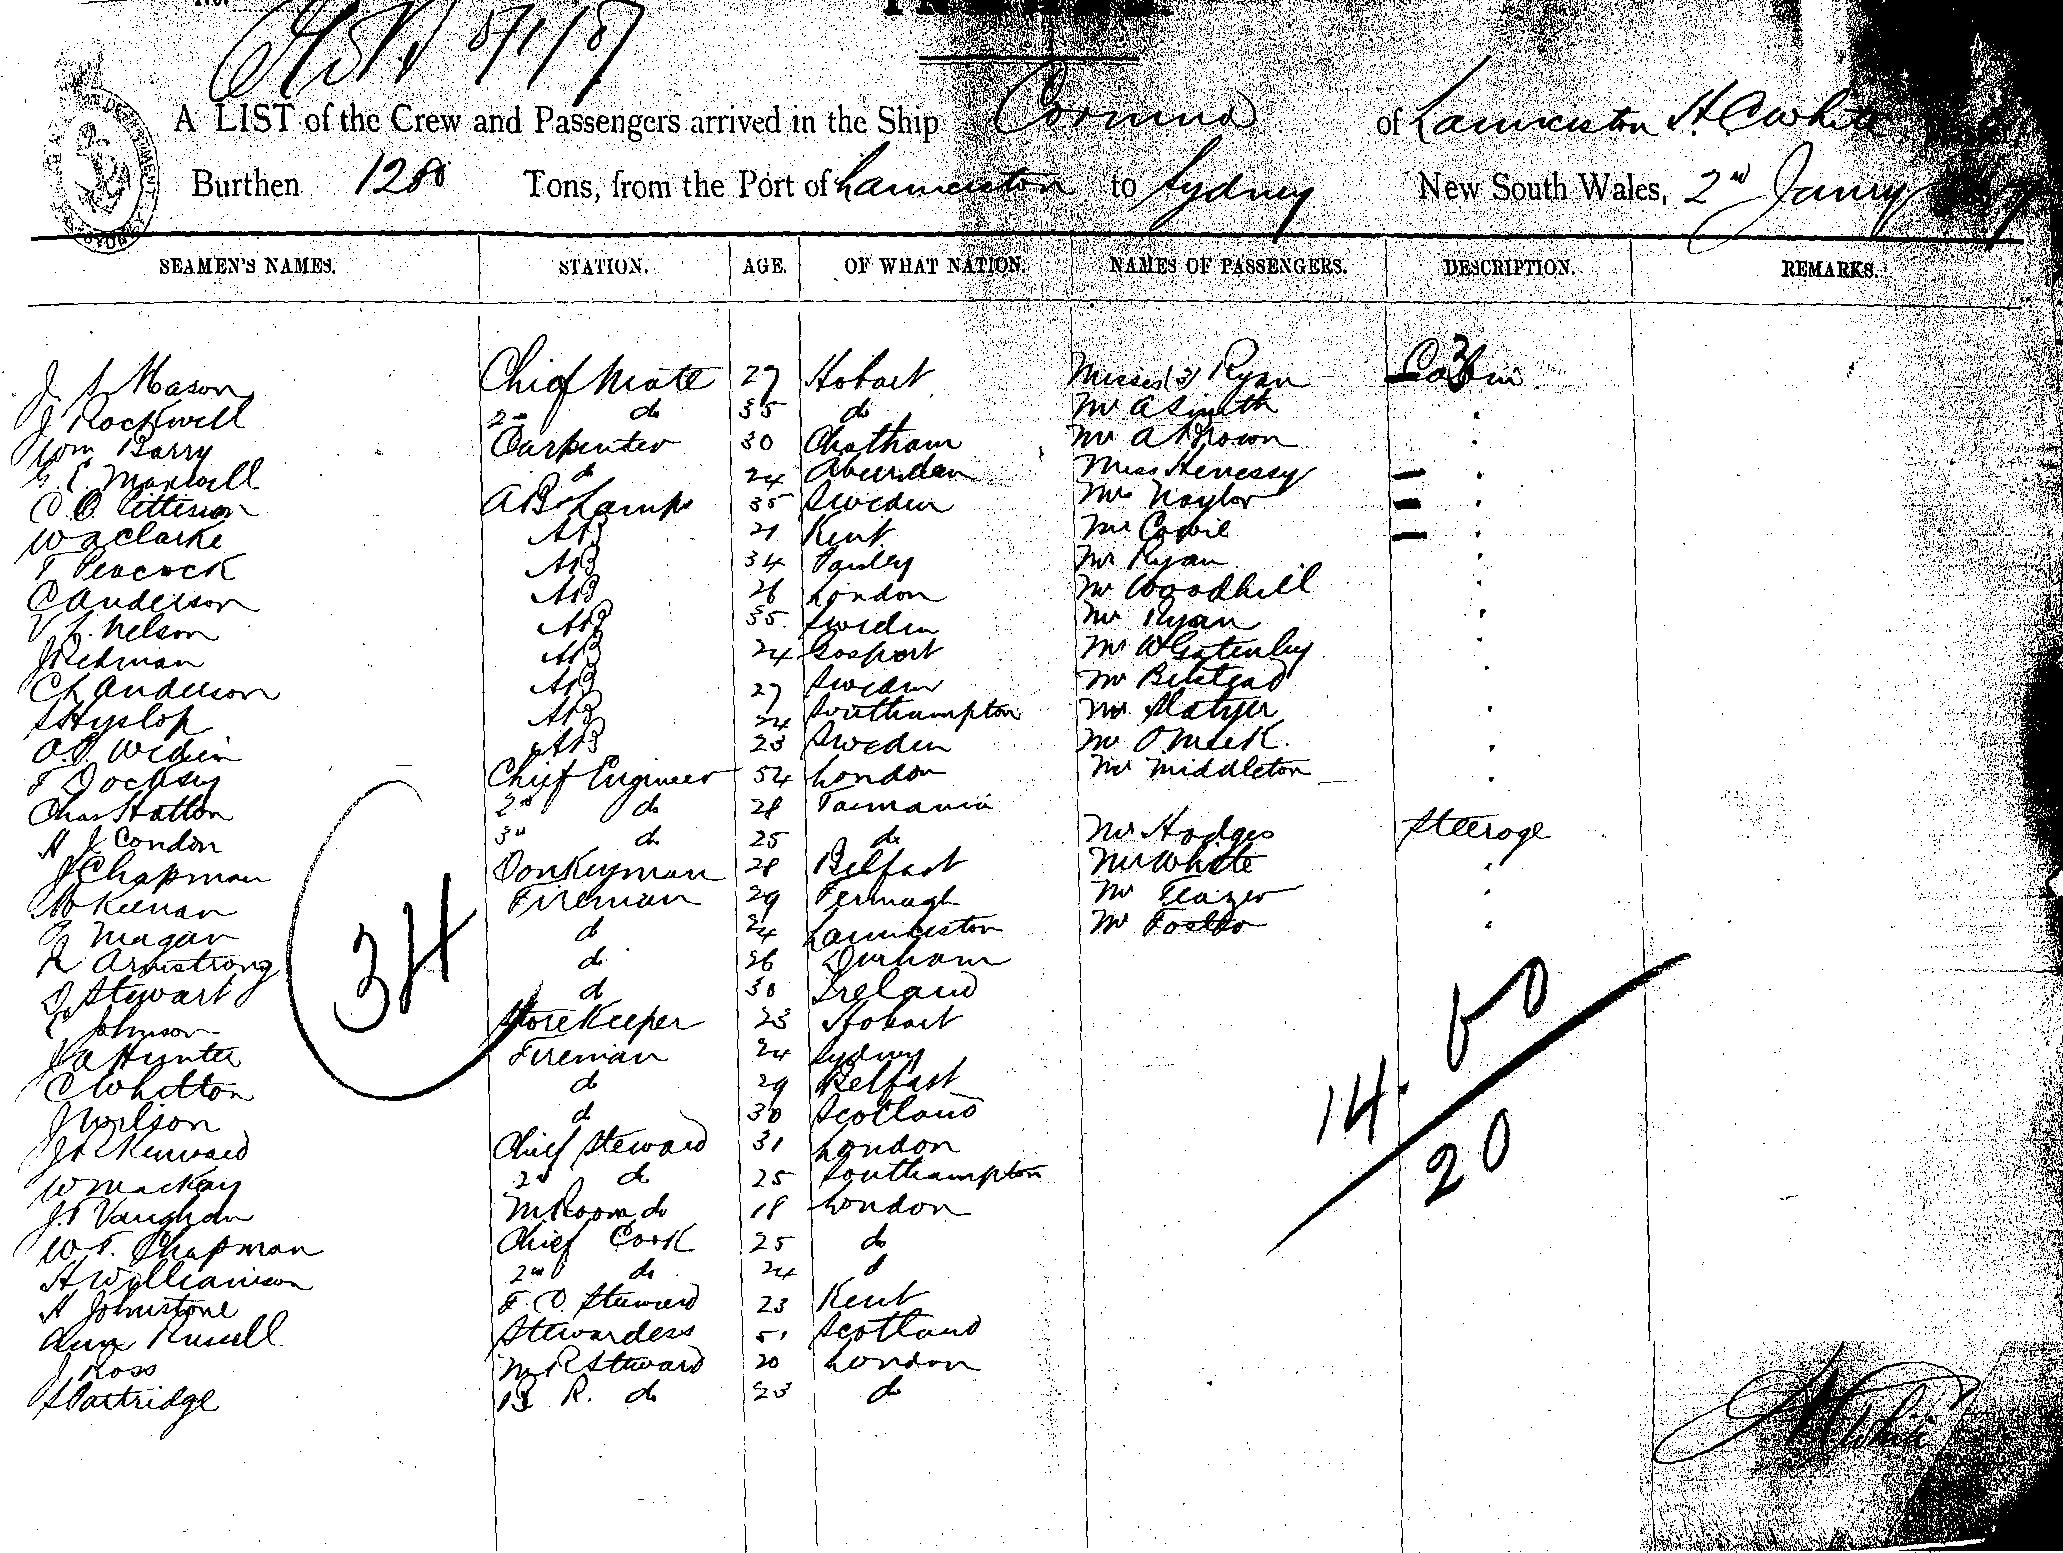 8/1/87
A LIST of the Crew and Passengers arrived in the Ship Corinna of Launceston H. C. White
Burthen 1280 Tons, from the Port of Launceston to Sydney New South Wales, 2nd Janry 1887
SEAMEN'S NAMES. STATION. AGE. OF WHAT NATION. NAMES OF PASSENGERS. DESCRIPTION. REMARKS.
J. S. Mason Chief Mate 27 Hobart Misses (3) Ryan Cabin 3
J Rockwill 2nd do 35 do Mr A Smith "
Wm Barry Carpenter 30 Chatham Mr A Brown "
G. E. Maxwell do 24 Aberdeen Miss Henessy "
C. O. Pitterson AB & Lamps 35 Sweden Mrs Naylor "
W A Clarke AB 21 Kent Mrs Cowie "
T Peacock AB 34 Mr Ryan "
C Anderson AB 26 London Mr Woodhill "
V. L. Nelson AB 35 Sweden Mr Ryan "
J Redman AB 24 Gosport Mr W Gatenby "
Ch Anderson AB 27 Sweden Mr "
S Hyslop AB 24 Southampton Mr Slatyer "
O. P. AB 23 Sweden Mr O Meek "
T Dochsey Chief Engineer 54 London Mr Middleton "
Chas Hatton 2nd do 28 Tasmania
H J Condon 3rd do 25 do Mr Hodges Steerage
J Chapman Donkeyman 28 Belfast Mr White "
Keenan Fireman 29 Fermagh Mr Teazer "
Magan do 24 Launceston Mr Foster "
R Armstrong do 26 Durham
D Stewart do 30 Ireland
Johnson Storekeeper 23 Hobart
J A Hunter Fireman 24 Sydney
C Whitton do 29 Belfast
J Wilson do 30 Scotland
Kinnaid Chief Steward 31 London
W Mackay 2nd do 25 Southampton
J. P. Vaughan M Room do 18 London
W. T. Chapman Chief Cook 25 do
H Wylliamson 2nd do 24 do
H Johnstone F. C. Steward 23 Kent
Ann Russell Stewardess 51 Scotland
J Ross M R Steward 20 London
S Partridge B. R. do 23 do
34
14. 60
20
H C White